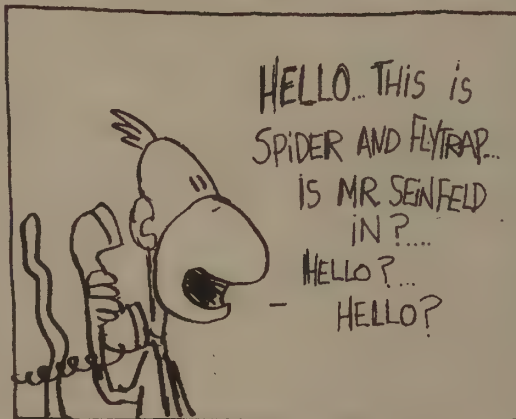 HELLO... THiS iS
SPiDER AND FLYTRAP...
iS MR SEiNFELD
iN?....
HELLO?...
HELLO?